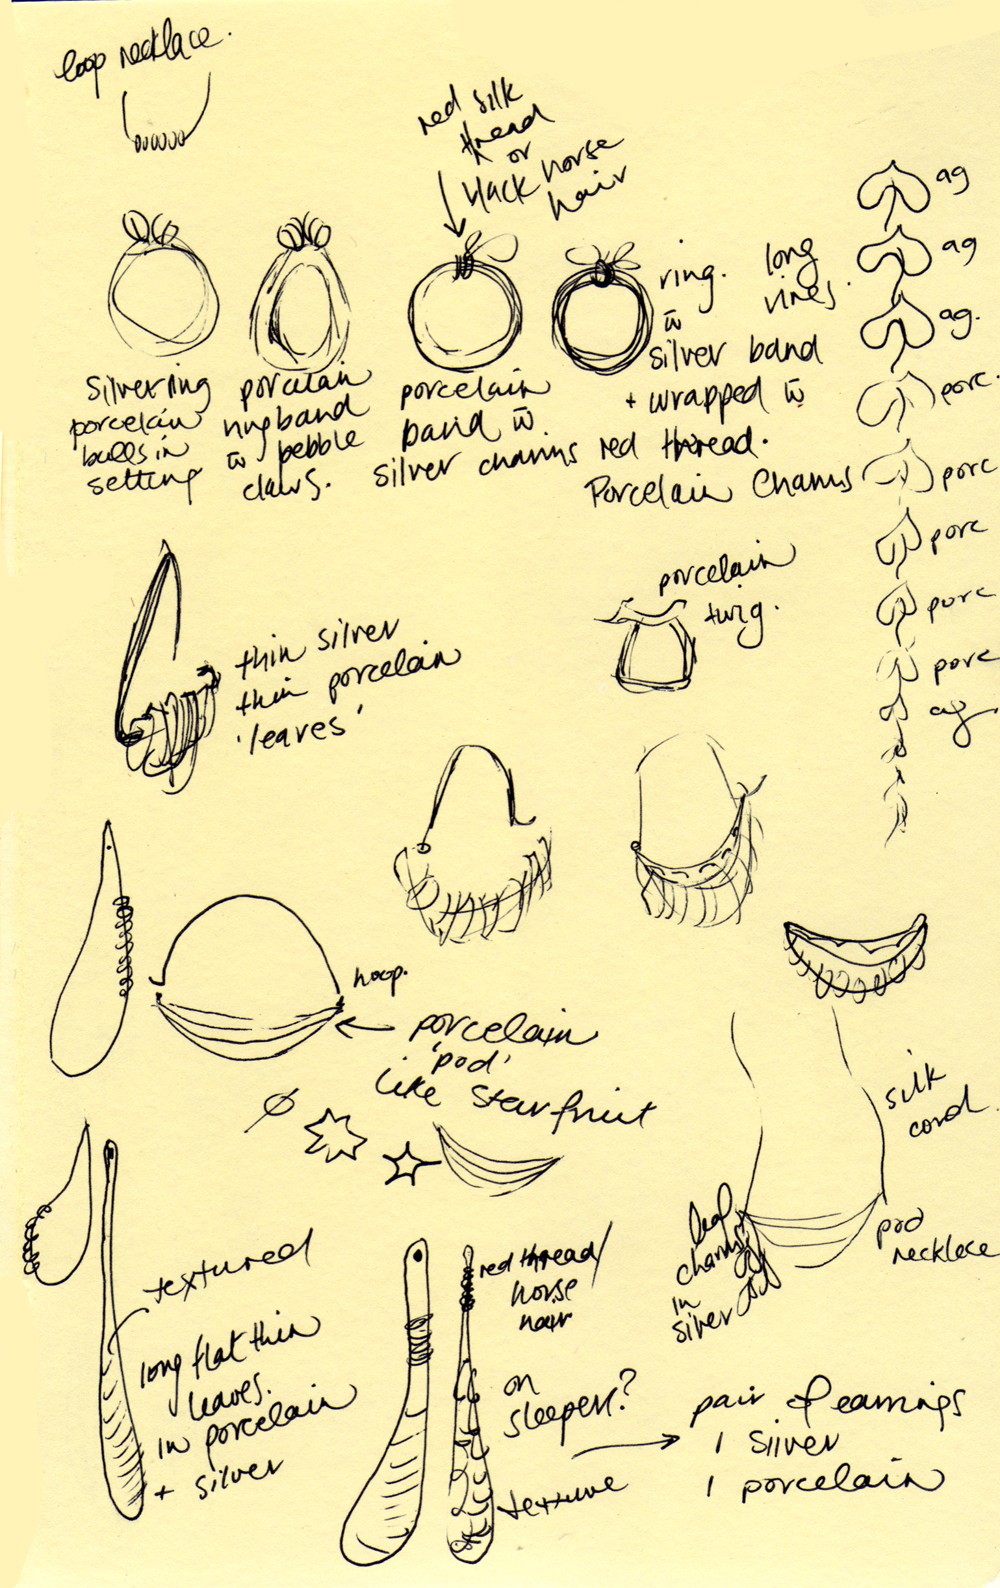 loop necklace.
red silk
thread
or
black horse
hair
ag
ag
ag.
porc.
porc
porc
porc
porc
ag
ring. long
w̄ vines.
silver band
+ wrapped w̄
red thread.
Silver ring
porcelain
balls in
setting
porcelain
ring band
w̄ pebble
claws.
porcelain
band w̄
silver charms
Porcelain Charms
porcelain
twig.
thin silver
thin porcelain
'leaves'
hoop.
porcelain
'pod'
like Starfruit
silk
cord
leaf
charms
in
silver
pod
necklace
textured
long flat thin
leaves.
in porcelain
+ silver
red thread/
horse
hair
on
sleeper?
texture
pair of earrings
1 silver
1 porcelain